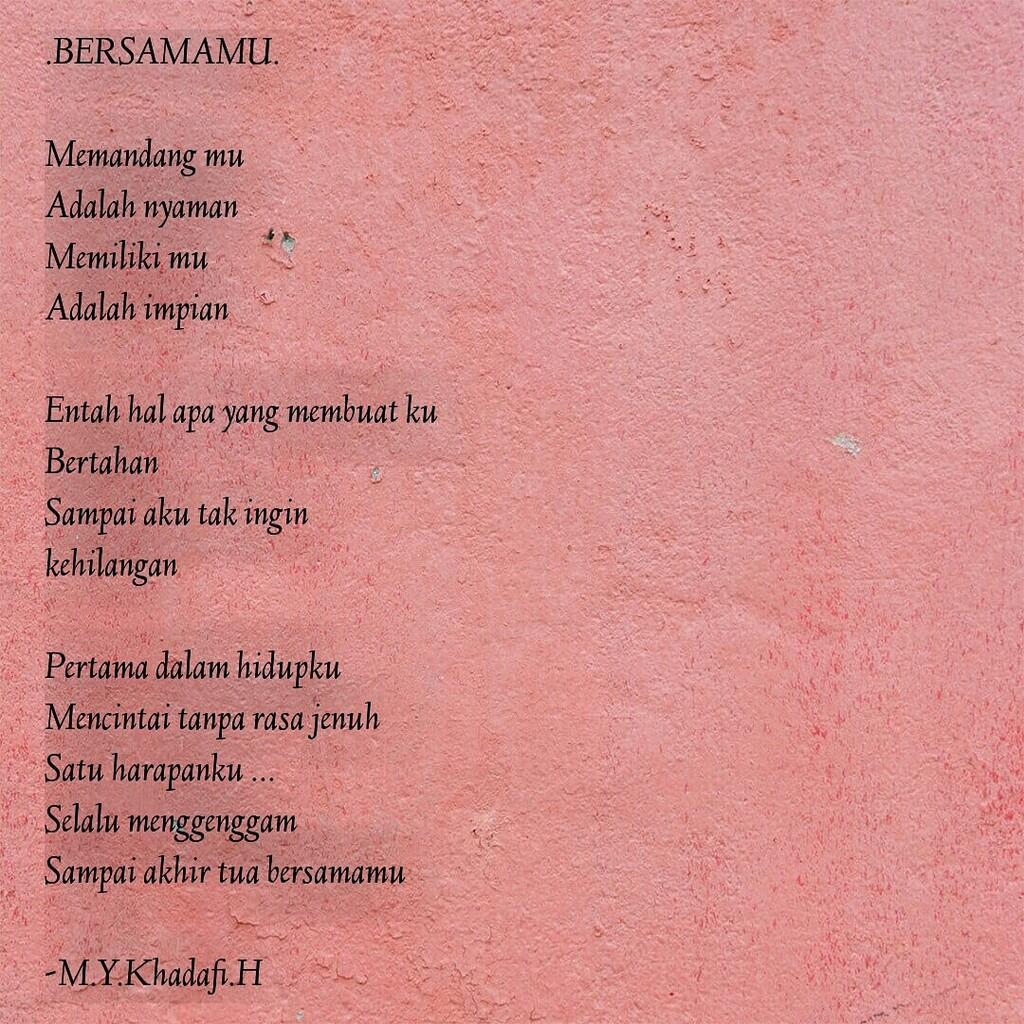 .BERSAMAMU.
Memandang mu
Adalah nyaman
Memiliki mu
Adalah impian
Entah hal apa yang membuat ku
Bertahan
Sampai aku tak ingin
kehilangan
Pertama dalam hidupku
Mencintai tanpa rasa jenuh
Satu harapanku ...
Selalu menggenggam
Sampai akhir tua bersamamu
-M.Y.Khadafi.H